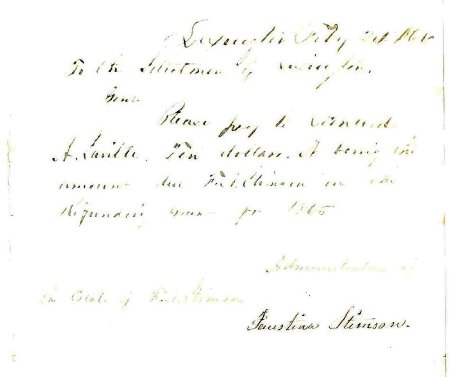 Lexington Feby
To the Selectmen of Lexington,
Please pay to Leonard
A. Saville. Ten dollars. It being the
amount due Stimson in the
for 1865
Administrator of
the Estate of Stimson
Faustina Stimson.